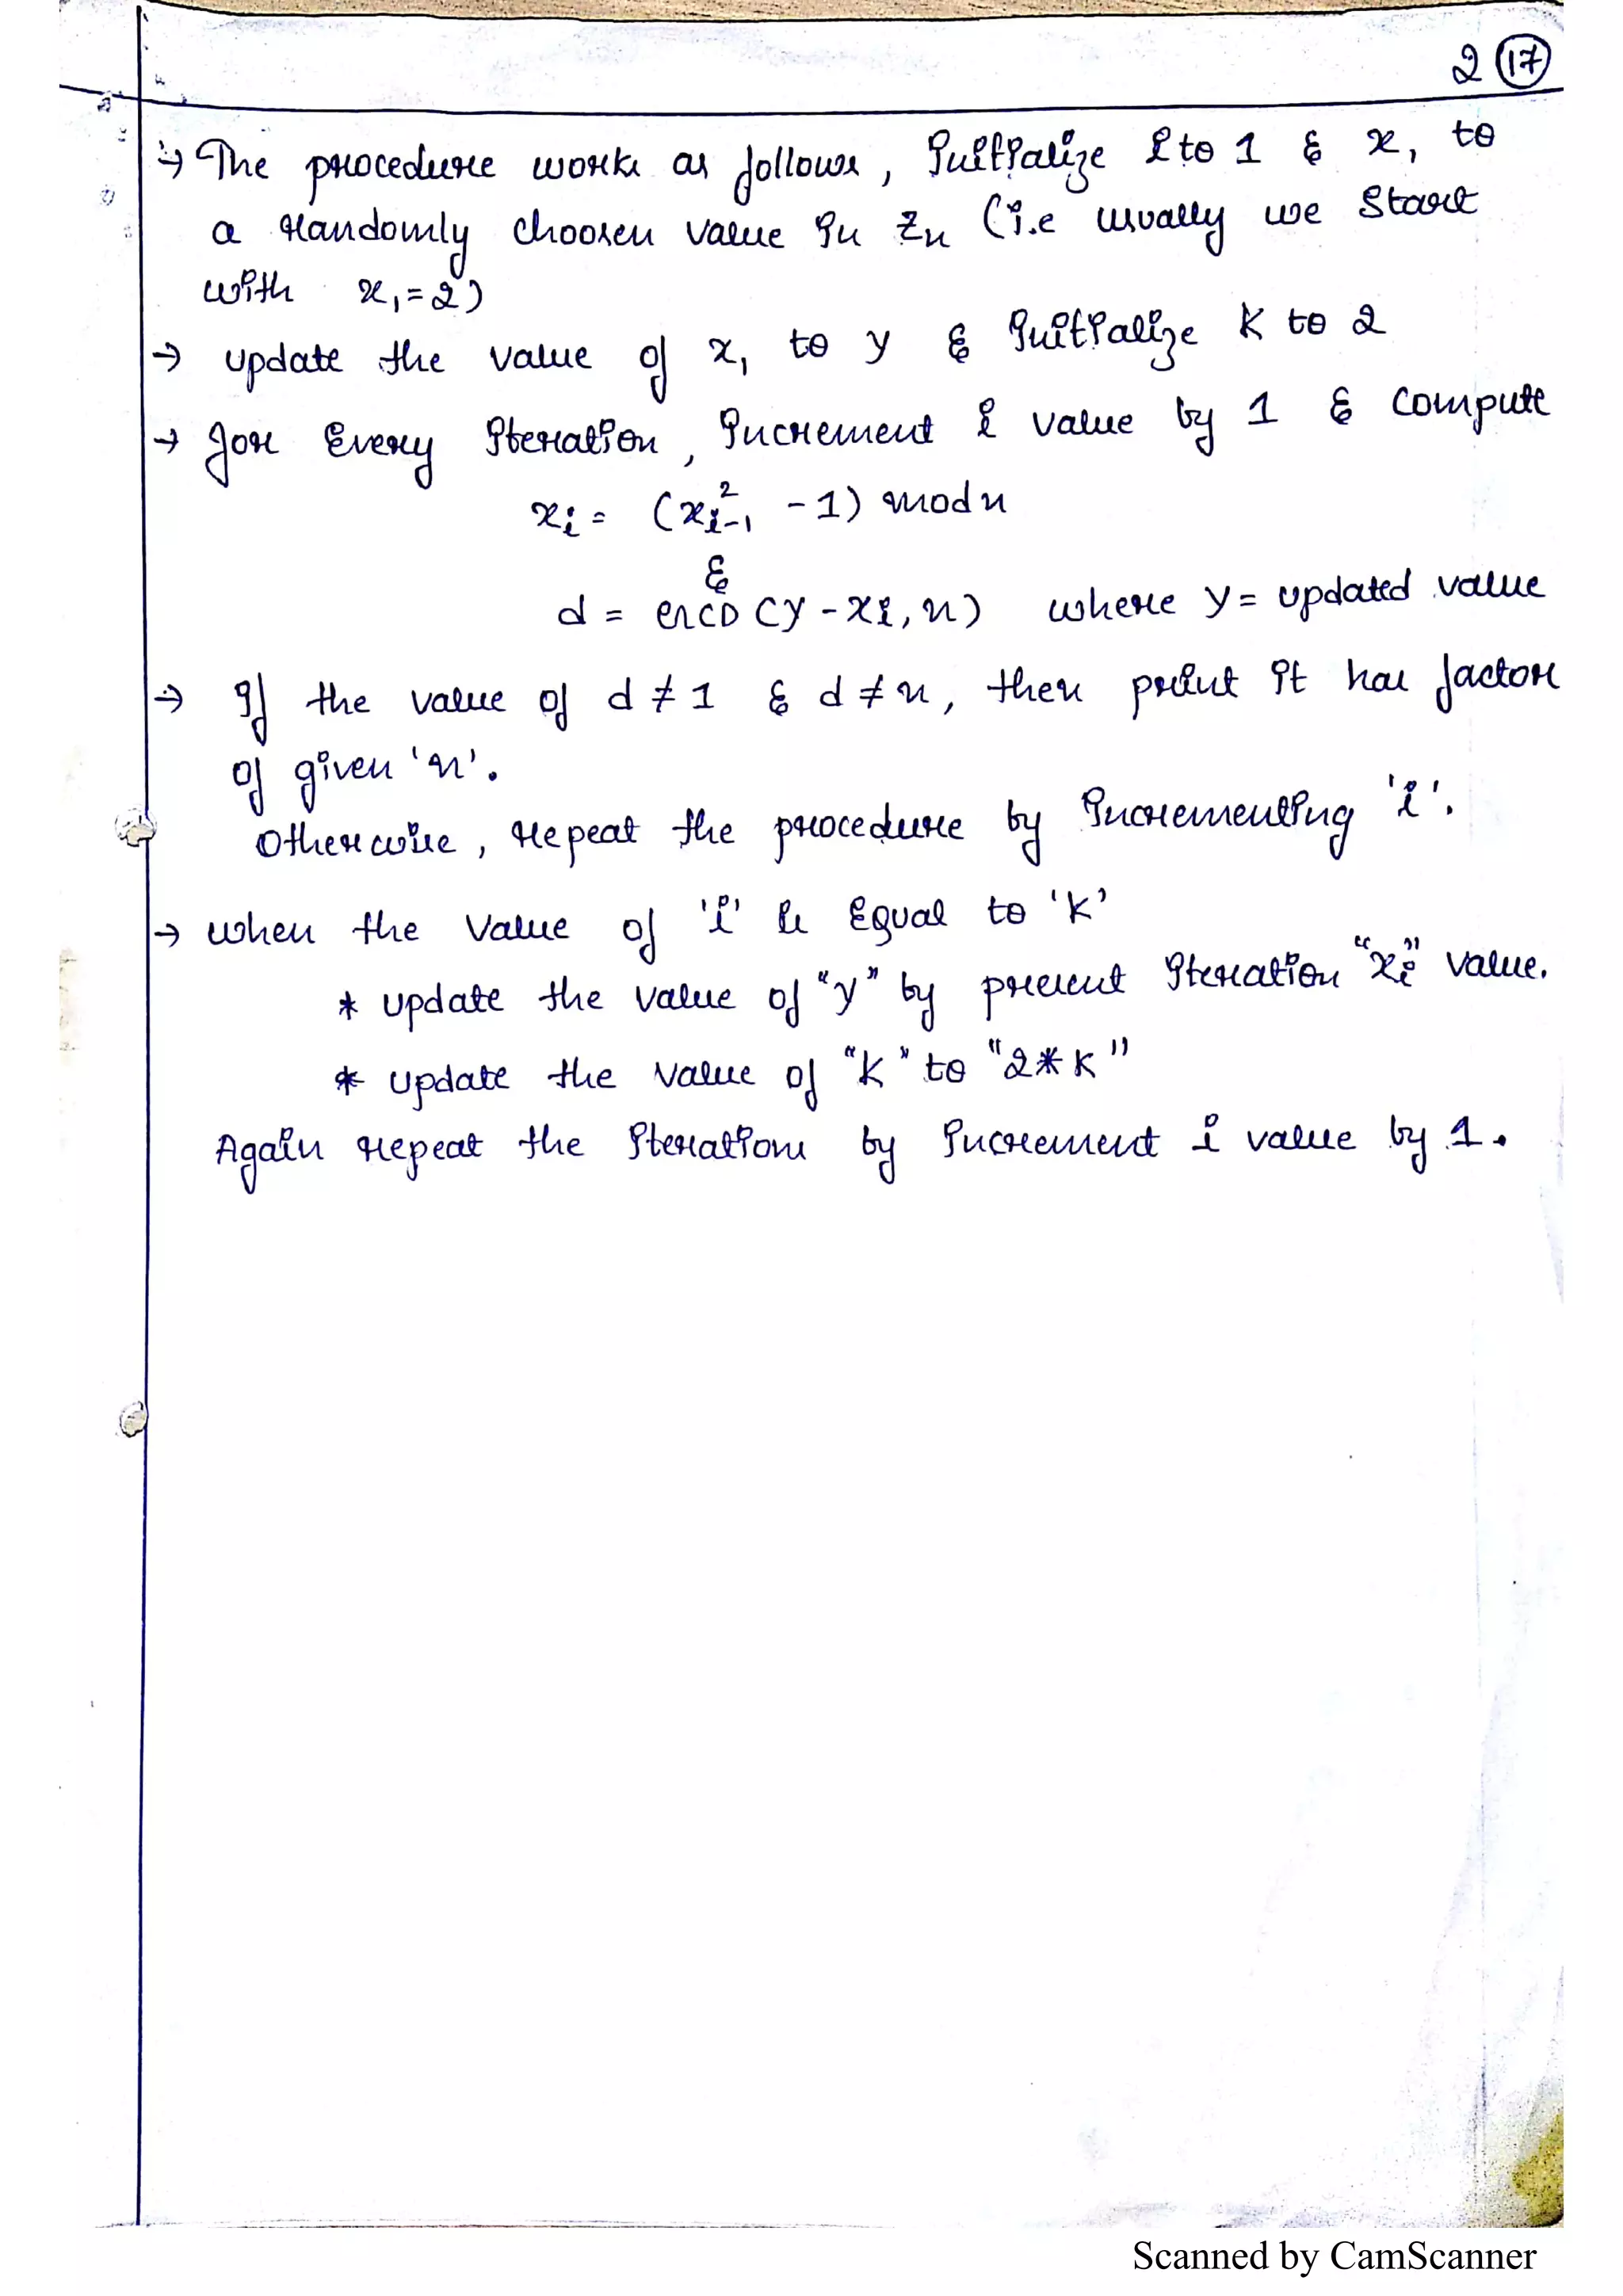 2 (17)
→ The procedure works as follows, Initialize i to 1 & x₁ to
a randomly choosen value in Zn (i.e usually we start
with x₁=2)
→ update the value of x₁ to y & Initialize K to 2
→ for Every Iteration, Increment i value by 1 & compute
xᵢ = (x²ᵢ₋₁ - 1) mod n
&
d = GCD (y - xi, n) where y = updated value
→ If the value of d ≠ 1 & d ≠ n, then print it has factor
of given 'n'.
Otherwise, repeat the procedure by Incrementing 'i'.
→ when the value of 'i' is Equal to 'K'
* update the value of "y" by present Iteration "xi" value.
* update the value of "K" to "2*K"
Again repeat the Iterations by Increment i value by 1.
Scanned by CamScanner